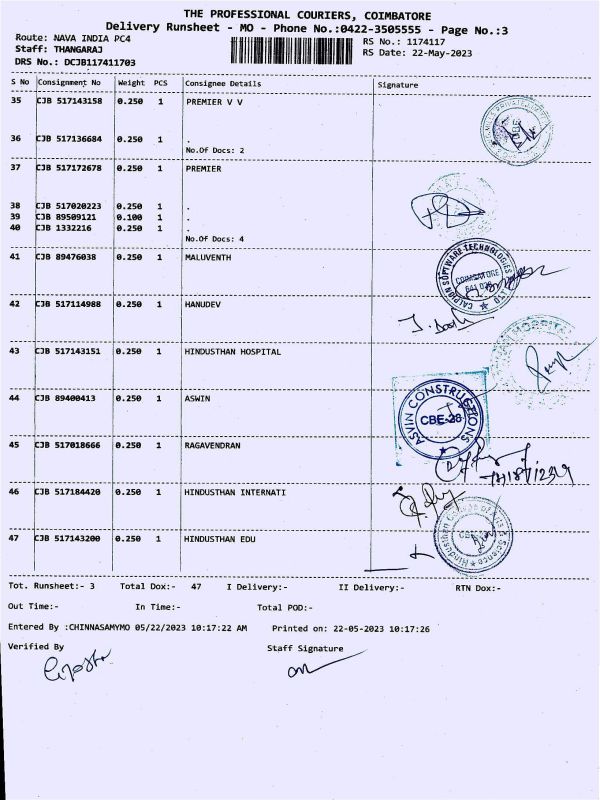 THE PROFESSIONAL COURIERS, COIMBATORE
Delivery Runsheet - MO - Phone No.:0422-3505555 - Page No.:3
Route: NAVA INDIA PC4 RS No.: 1174117
Staff: THANGARAJ RS Date: 22-May-2023
DRS No.: DCJB117411703
S No Consignment No Weight PCS Consignee Details Signature
35 CJB 517143158 0.250 1 PREMIER V V
36 CJB 517136684 0.250 1 .
No.Of Docs: 2
37 CJB 517172678 0.250 1 PREMIER
38 CJB 517020223 0.250 1 .
39 CJB 89509121 0.100 1 .
40 CJB 1332216 0.250 1 .
No.Of Docs: 4
41 CJB 89476038 0.250 1 MALUVENTH
CALPION SOFTWARE TECHNOLOGIES
COIMBATORE
42 CJB 517114988 0.250 1 HANUDEV
43 CJB 517143151 0.250 1 HINDUSTHAN HOSPITAL
HOSPITAL
44 CJB 89400413 0.250 1 ASWIN
ASVIN CONSTRUCTIONS
CBE-28
45 CJB 517018666 0.250 1 RAGAVENDRAN
46 CJB 517184420 0.250 1 HINDUSTHAN INTERNATI
47 CJB 517143200 0.250 1 HINDUSTHAN EDU
Hindusthan College of Arts & Science
Tot. Runsheet:- 3 Total Dox:- 47 I Delivery:- II Delivery:- RTN Dox:-
Out Time:- In Time:- Total POD:-
Entered By :CHINNASAMYMO 05/22/2023 10:17:22 AM Printed on: 22-05-2023 10:17:26
Verified By Staff Signature